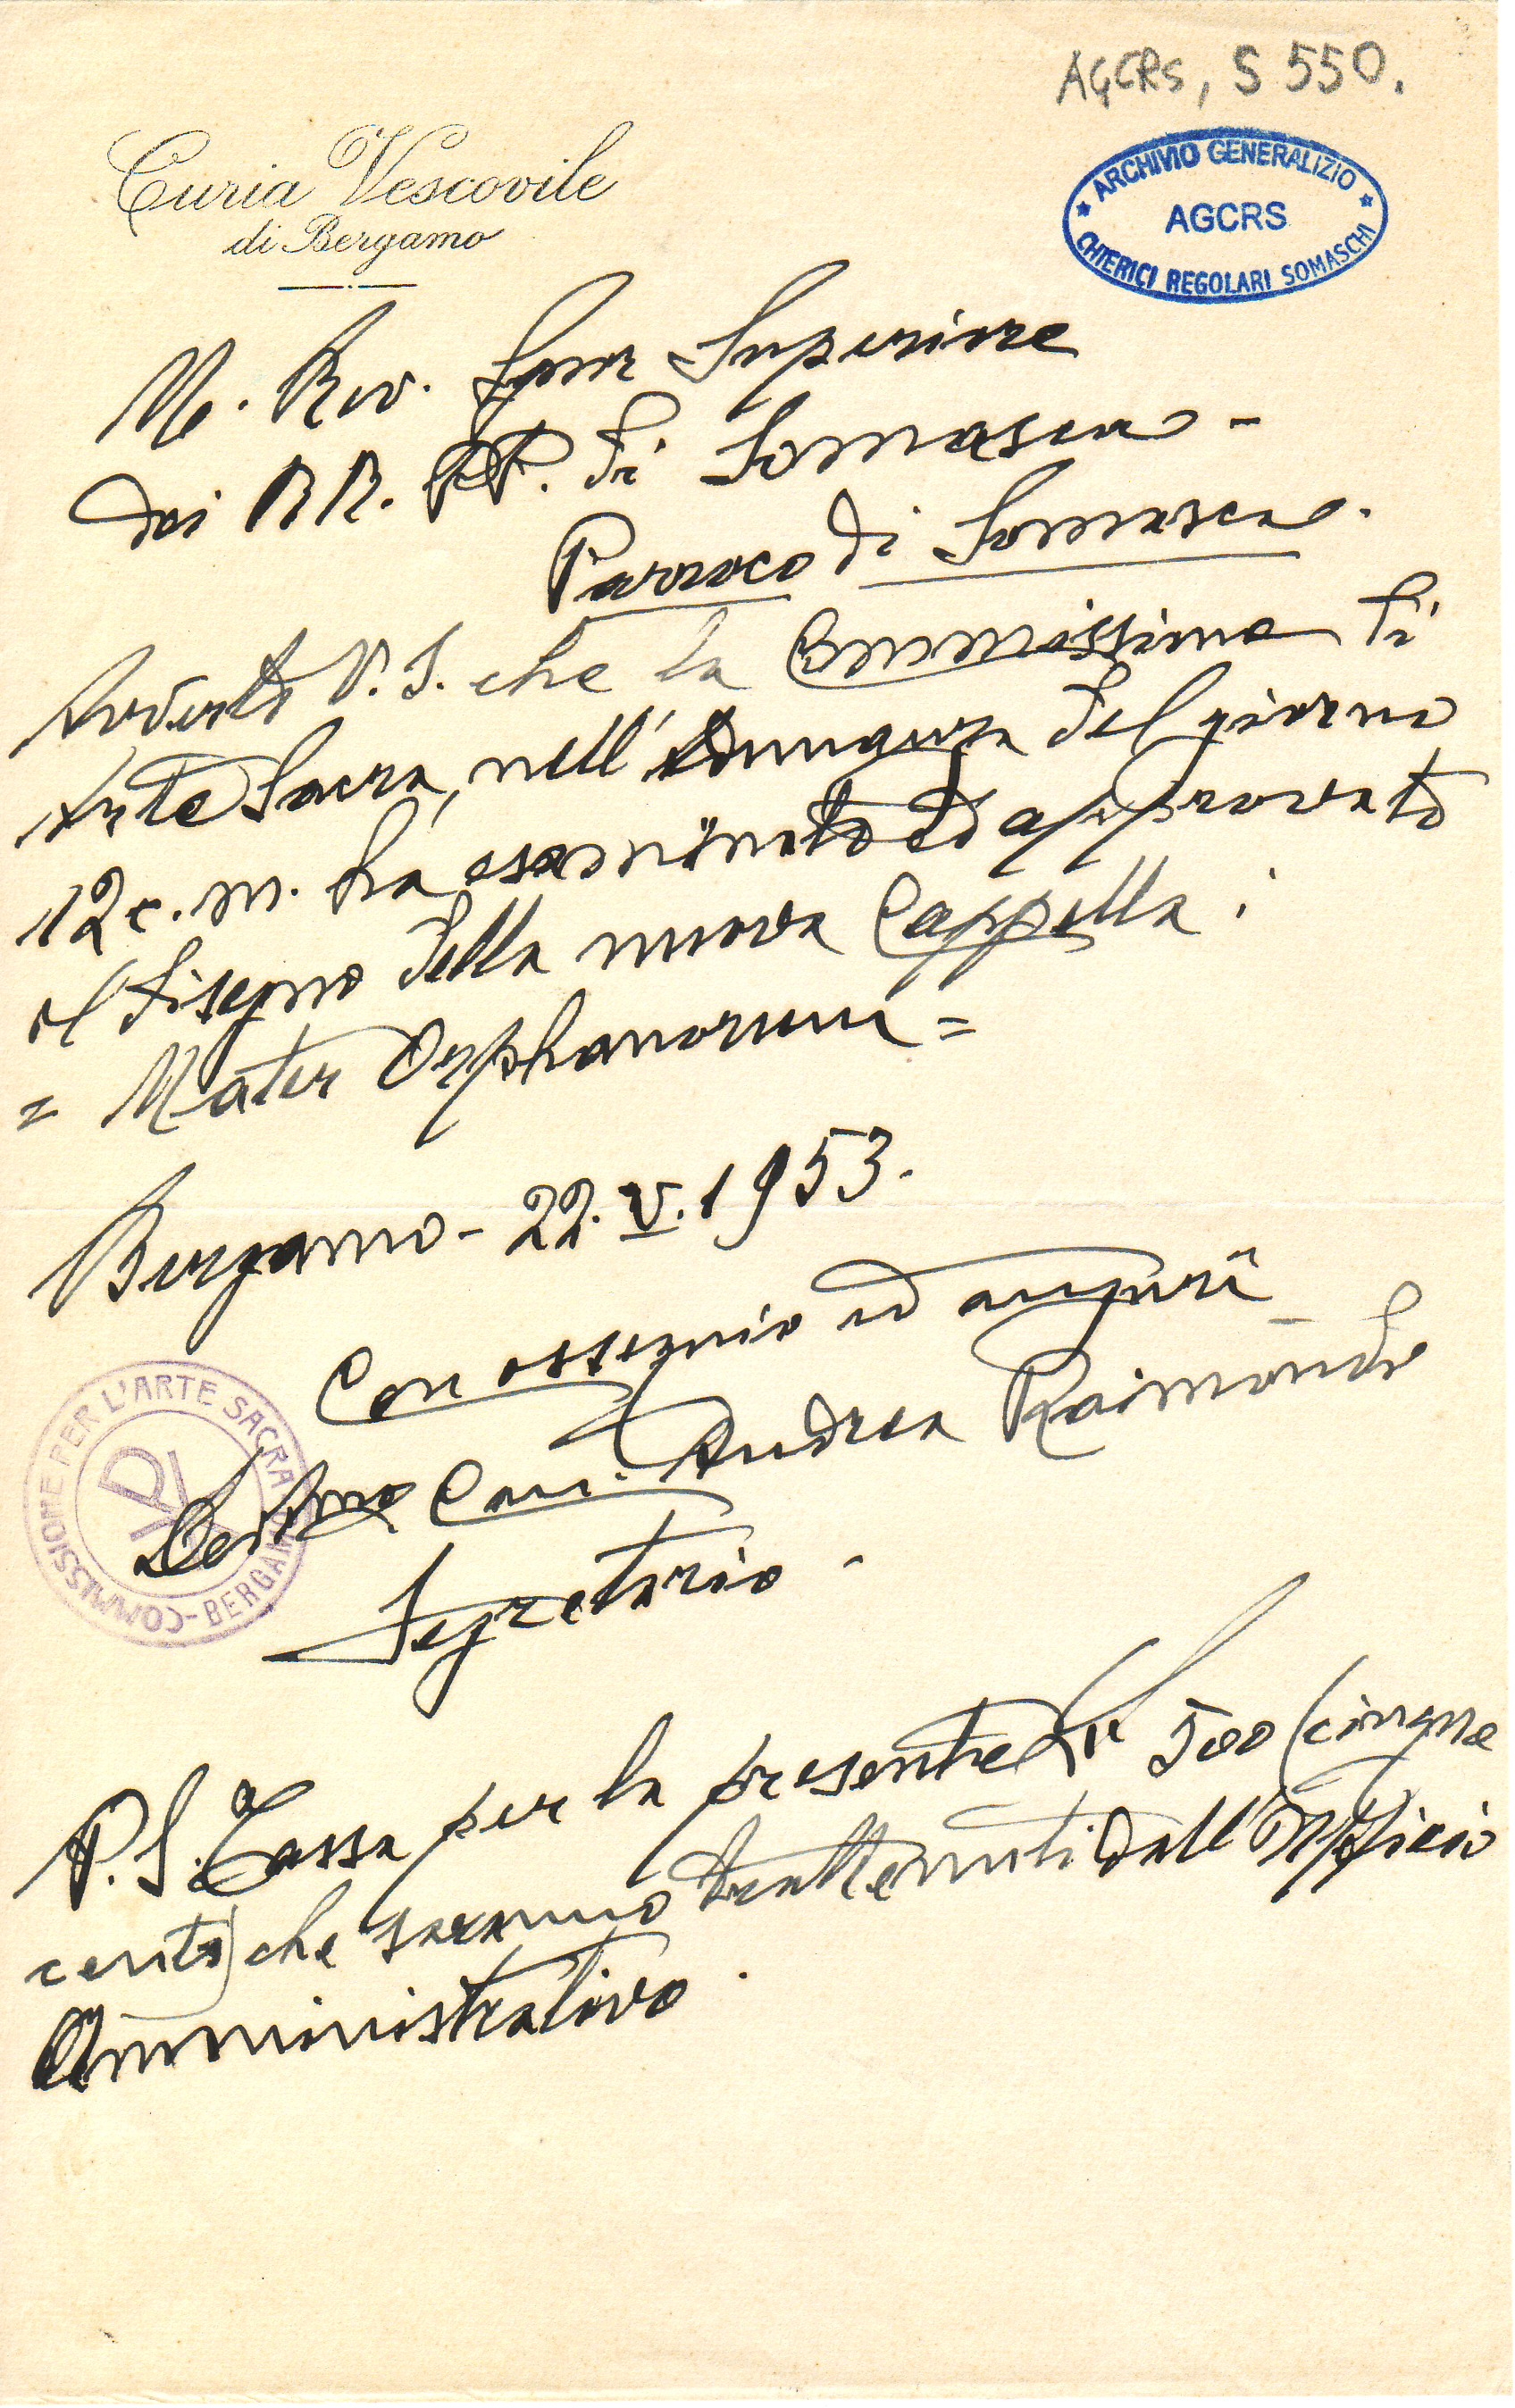 AGCRS, S 550.
Curia Vescovile
di Bergamo
ARCHIVIO GENERALIZIO
AGCRS
CHIERICI REGOLARI SOMASCHI
M. Rev. Superiore
dei RR. PP. di Somasca -
Parroco di Somasca.
Avverto V. S. che la Commissione di
Arte Sacra, nell'adunanza del giorno
12 c. m. ha esaminato ed approvato
il disegno della nuova Cappella:
= Mater Orphanorum =
Bergamo - 22. V. 1953.
Con ossequio ed auguri
Can. Andrea Raimondi
Segretario -
COMMISSIONE PER L'ARTE SACRA - BERGAMO
P. S. Tassa per la presente 500 (cinque
cento) che saranno trattenuti dall'Ufficio
Amministrativo.